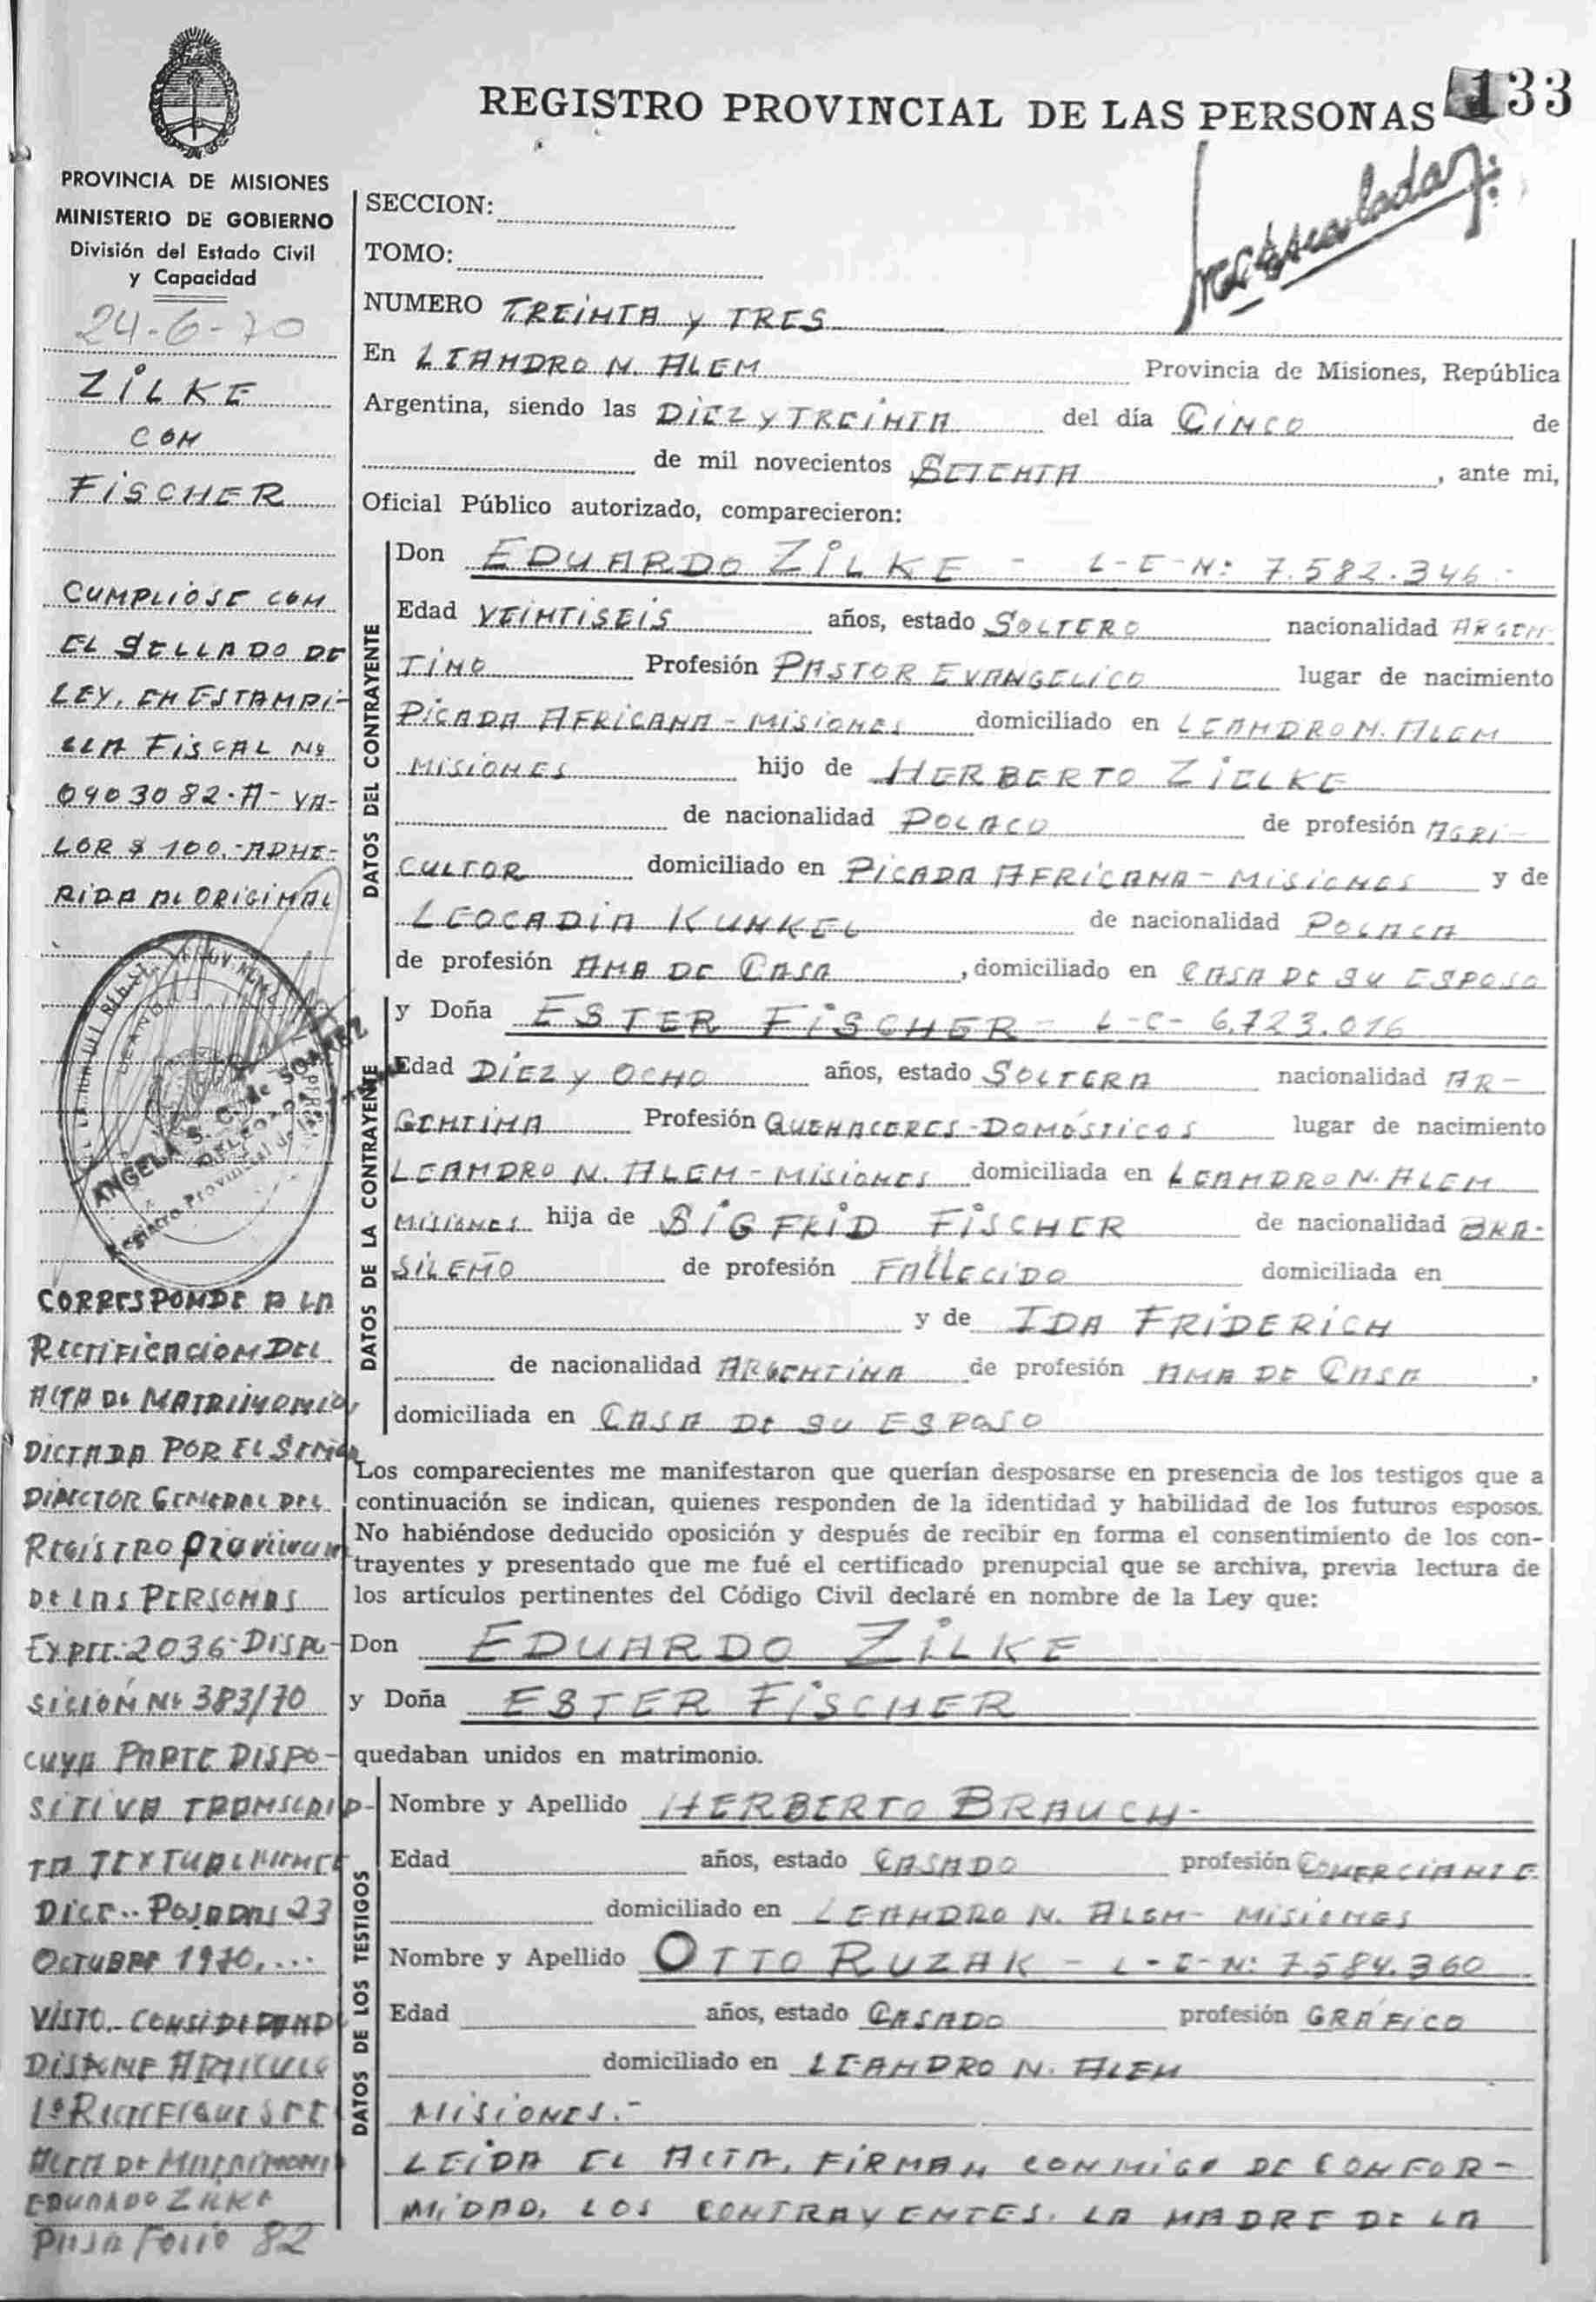 REGISTRO PROVINCIAL DE LAS PERSONAS 133
PROVINCIA DE MISIONES
MINISTERIO DE GOBIERNO
División del Estado Civil
y Capacidad
24-6-70
ZILKE
CON
FISCHER
CUMPLIÓSE CON
EL SELLADO DE
LEY, EN ESTAMPI-
LLA FISCAL Nº
0903082-A- VA-
LOR $ 100.-ADHE-
RIDA AL ORIGINAL
ANGELA S. C. de SOAREZ
DELEGADA
Registro Provincial de las Personas
CORRESPONDE A LA
RECTIFICACION DEL
ACTA DE MATRIMONIO,
DICTADA POR EL SEÑOR
DIRECTOR GENERAL DEL
REGISTRO PROVINCIAL
DE LAS PERSONAS
EXPTE: 2036-DISPO-
SICIÓN Nº 383/70
CUYA PARTE DISPO-
SITIVA TRANSCRIP-
TA TEXTUALMENTE
DICE.- POSADAS 23
OCTUBRE 1970,...
VISTO.- CONSIDERANDO
DISPONE ARTICULO
1º RECTIFIQUESE EL
ACTA DE MATRIMONIO
EDUARDO ZILKE
PASA FOLIO 82
SECCION:
TOMO:
NUMERO TREINTA Y TRES
En LEANDRO N. ALEM Provincia de Misiones, República
Argentina, siendo las DIEZ Y TREINTA del día CINCO de
de mil novecientos SETENTA, ante mi,
Oficial Público autorizado, comparecieron:
DATOS DEL CONTRAYENTE
Don EDUARDO ZILKE - L-E-N: 7.582.346-
Edad VEINTISEIS años, estado SOLTERO nacionalidad ARGEN-
TINO Profesión PASTOR EVANGELICO lugar de nacimiento
PICADA AFRICANA-MISIONES domiciliado en LEANDRO N. ALEM
MISIONES hijo de HERBERTO ZIELKE
de nacionalidad POLACO de profesión AGRI-
CULTOR domiciliado en PICADA AFRICANA-MISIONES y de
LEOCADIA KUNKEL de nacionalidad POLACA
de profesión AMA DE CASA, domiciliado en CASA DE SU ESPOSO
DATOS DE LA CONTRAYENTE
y Doña ESTER FISCHER- L-C- 6.723.016
Edad DIEZ Y OCHO años, estado SOLTERA nacionalidad AR-
GENTINA Profesión QUEHACERES-DOMÉSTICOS lugar de nacimiento
LEANDRO N. ALEM-MISIONES domiciliada en LEANDRO N. ALEM
MISIONES hija de SIGFRID FISCHER de nacionalidad BRA-
SILEÑO de profesión FALLECIDO domiciliada en
y de IDA FRIDERICH
de nacionalidad ARGENTINA de profesión AMA DE CASA,
domiciliada en CASA DE SU ESPOSO
Los comparecientes me manifestaron que querían desposarse en presencia de los testigos que a
continuación se indican, quienes responden de la identidad y habilidad de los futuros esposos.
No habiéndose deducido oposición y después de recibir en forma el consentimiento de los con-
trayentes y presentado que me fué el certificado prenupcial que se archiva, previa lectura de
los artículos pertinentes del Código Civil declaré en nombre de la Ley que:
Don EDUARDO ZILKE
y Doña ESTER FISCHER
quedaban unidos en matrimonio.
DATOS DE LOS TESTIGOS
Nombre y Apellido HERBERTO BRAUCH-
Edad años, estado CASADO profesión COMERCIANTE
domiciliado en LEANDRO N. ALEM- MISIONES
Nombre y Apellido OTTO RUZAK - L-E-N: 7.584.360
Edad años, estado CASADO profesión GRÁFICO
domiciliado en LEANDRO N. ALEM
MISIONES.-
LEIDA EL ACTA, FIRMAN CONMIGO DE CONFOR-
MIDAD, LOS CONTRAYENTES. LA MADRE DE LA